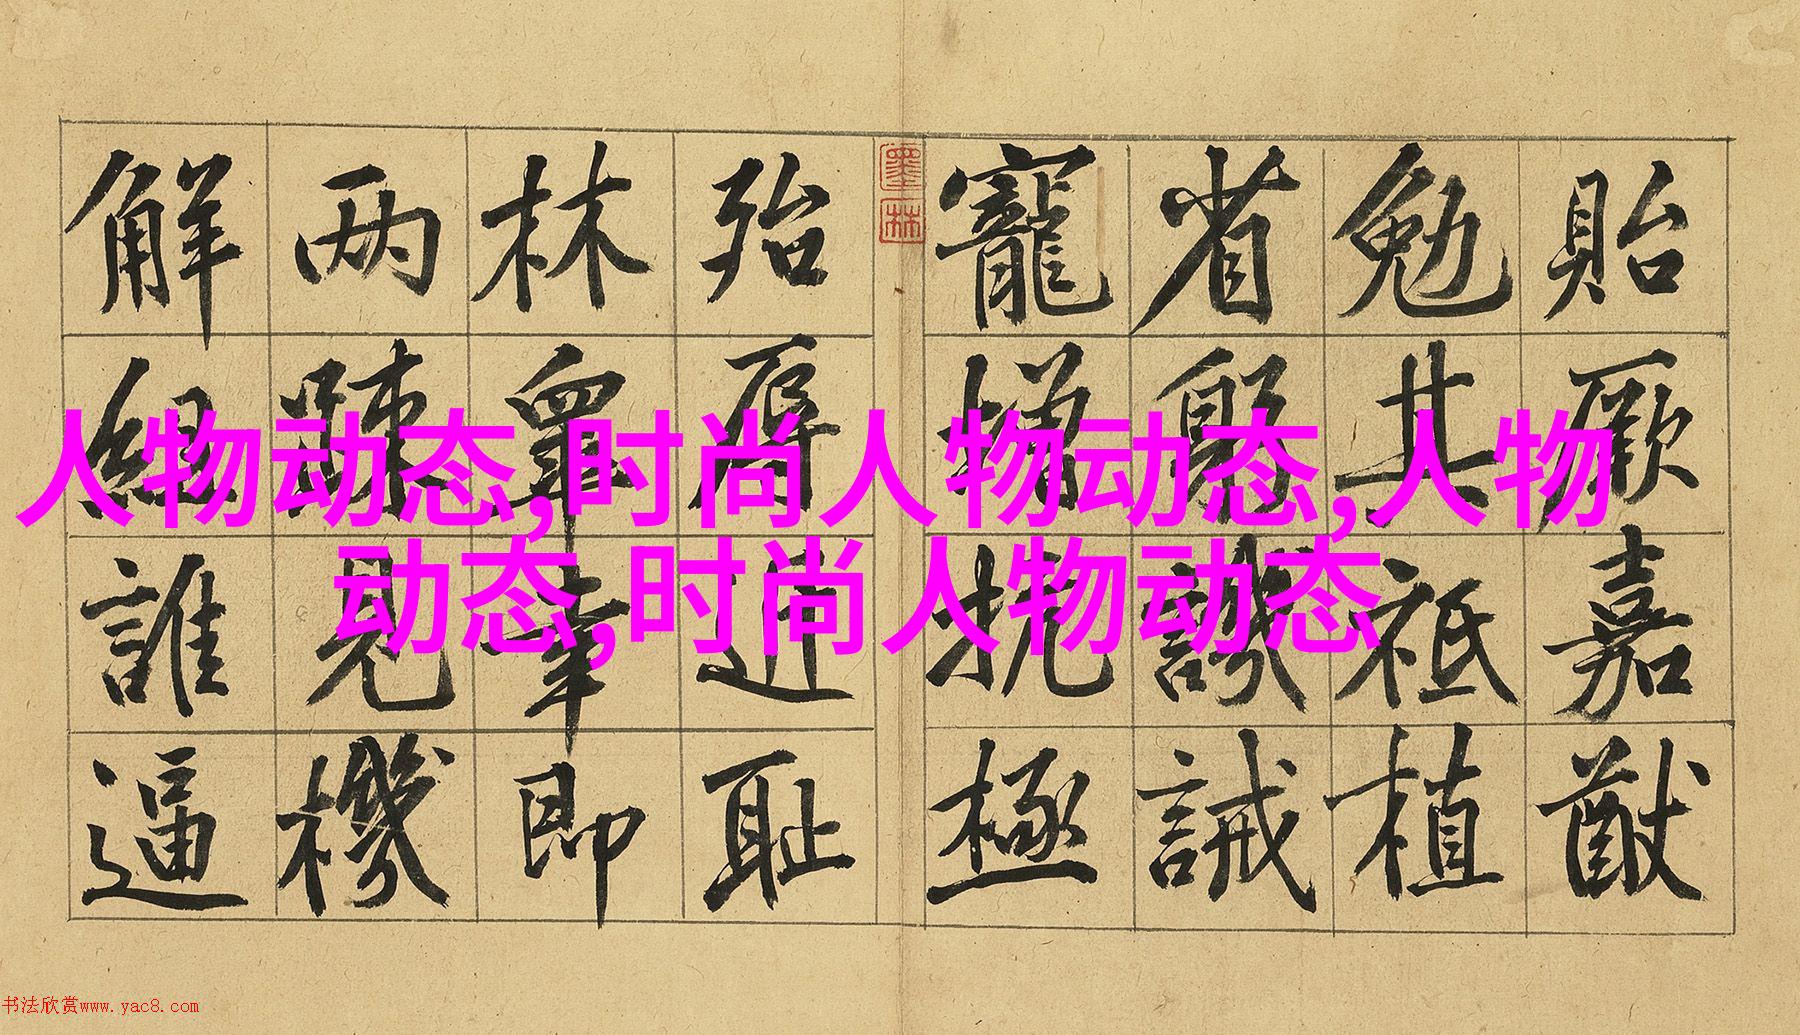 貽厥嘉猷
勉其祗植
省躬譏誡
寵增抗極
殆辱近耻
林皐幸即
两踈見機
解組誰逼
墨林
人物动态,时尚人物动态,人物
动态,时尚人物动态
书法欣赏www.yac8.com